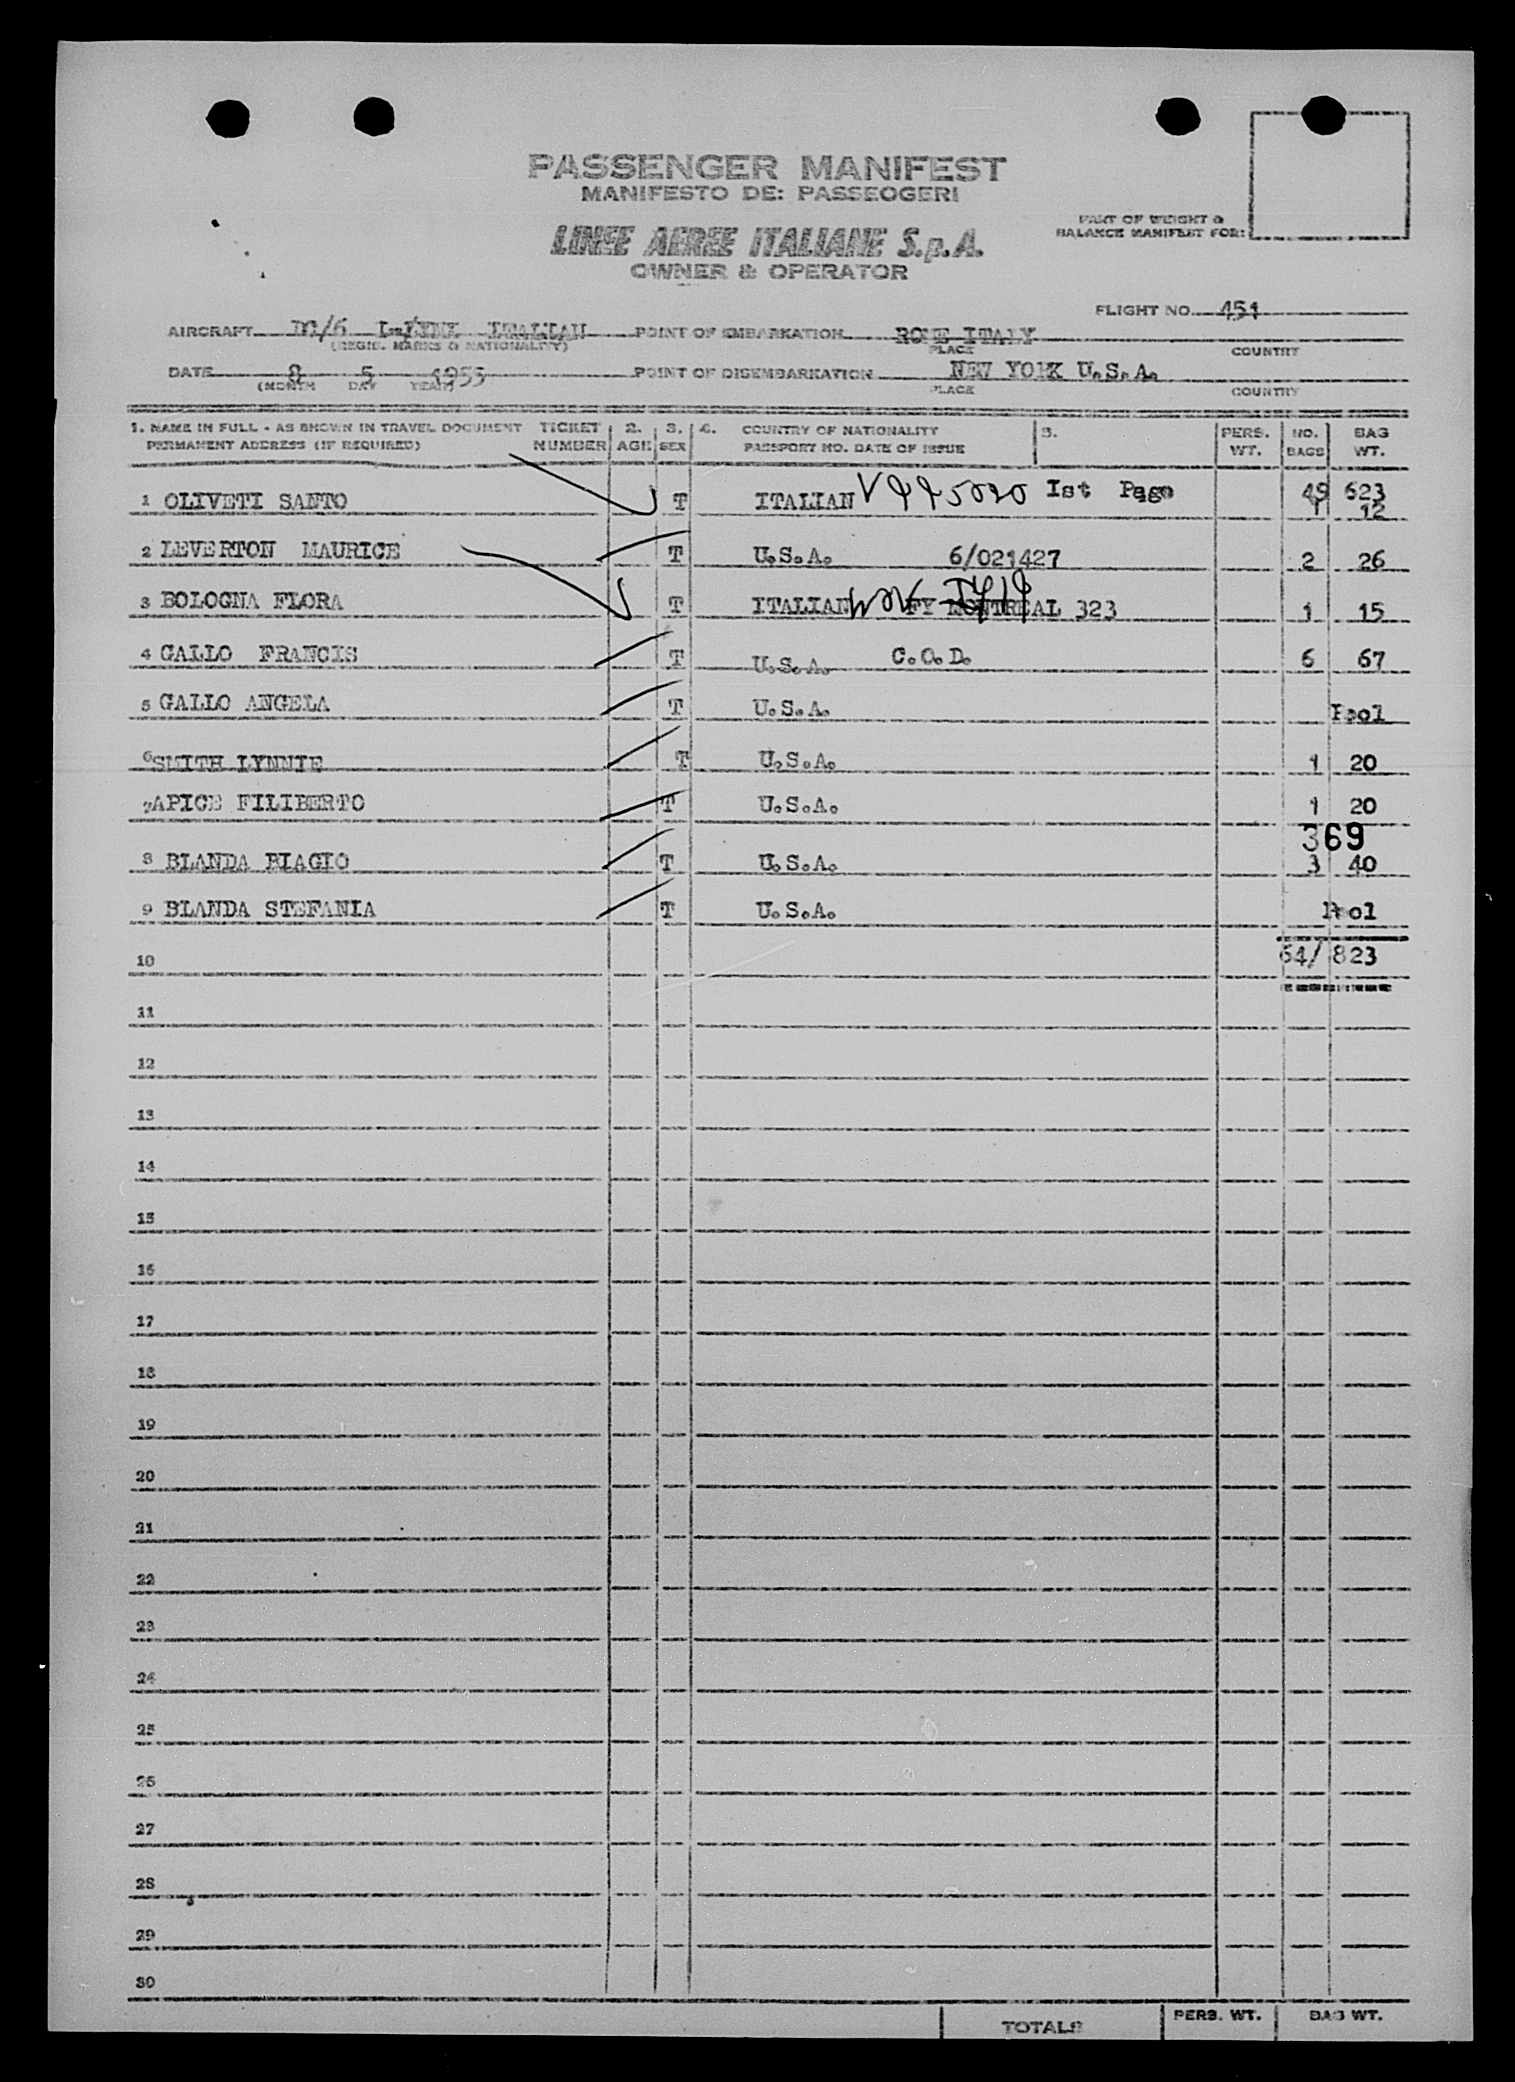 PASSENGER MANIFEST
MANIFESTO DE: PASSEOGERI
LINEE AEREE ITALIANE S.p.A.
OWNER & OPERATOR
PART OF WEIGHT &
BALANCE MANIFEST FOR:
FLIGHT NO. 451
AIRCRAFT ITALIAN POINT OF EMBARKATION ROME ITALY
(REGIS. MARKS & NATIONALITY) PLACE COUNTRY
DATE 8 5 1955 POINT OF DISEMBARKATION NEW YORK U.S.A.
(MONTH DAY YEAR) PLACE COUNTRY
1. NAME IN FULL - AS SHOWN IN TRAVEL DOCUMENT TICKET 2. 3. 4. COUNTRY OF NATIONALITY 5. PERS. NO. BAG
PERMANENT ADDRESS (IF REQUIRED) NUMBER AGE SEX PASSPORT NO. DATE OF ISSUE WT. BAGS WT.
1 OLIVETI SANTO T ITALIAN Ist Page 49 623
1 12
2 LEVERTON MAURICE T U.S.A. 6/021427 2 26
3 BOLOGNA FLORA T ITALIAN FY MONTREAL 323 1 15
4 GALLO FRANCIS T U.S.A. C.O.D. 6 67
5 GALLO ANGELA T U.S.A. Pool
6 SMITH LYNNIE T U.S.A. 1 20
7 APICE FILIBERTO T U.S.A. 1 20
369
8 BLANDA BIAGIO T U.S.A. 3 40
9 BLANDA STEFANIA T U.S.A. Pool
10 64/ 823
11
12
13
14
15
16
17
18
19
20
21
22
23
24
25
26
27
28
29
30
TOTALS PERS. WT. BAG WT.